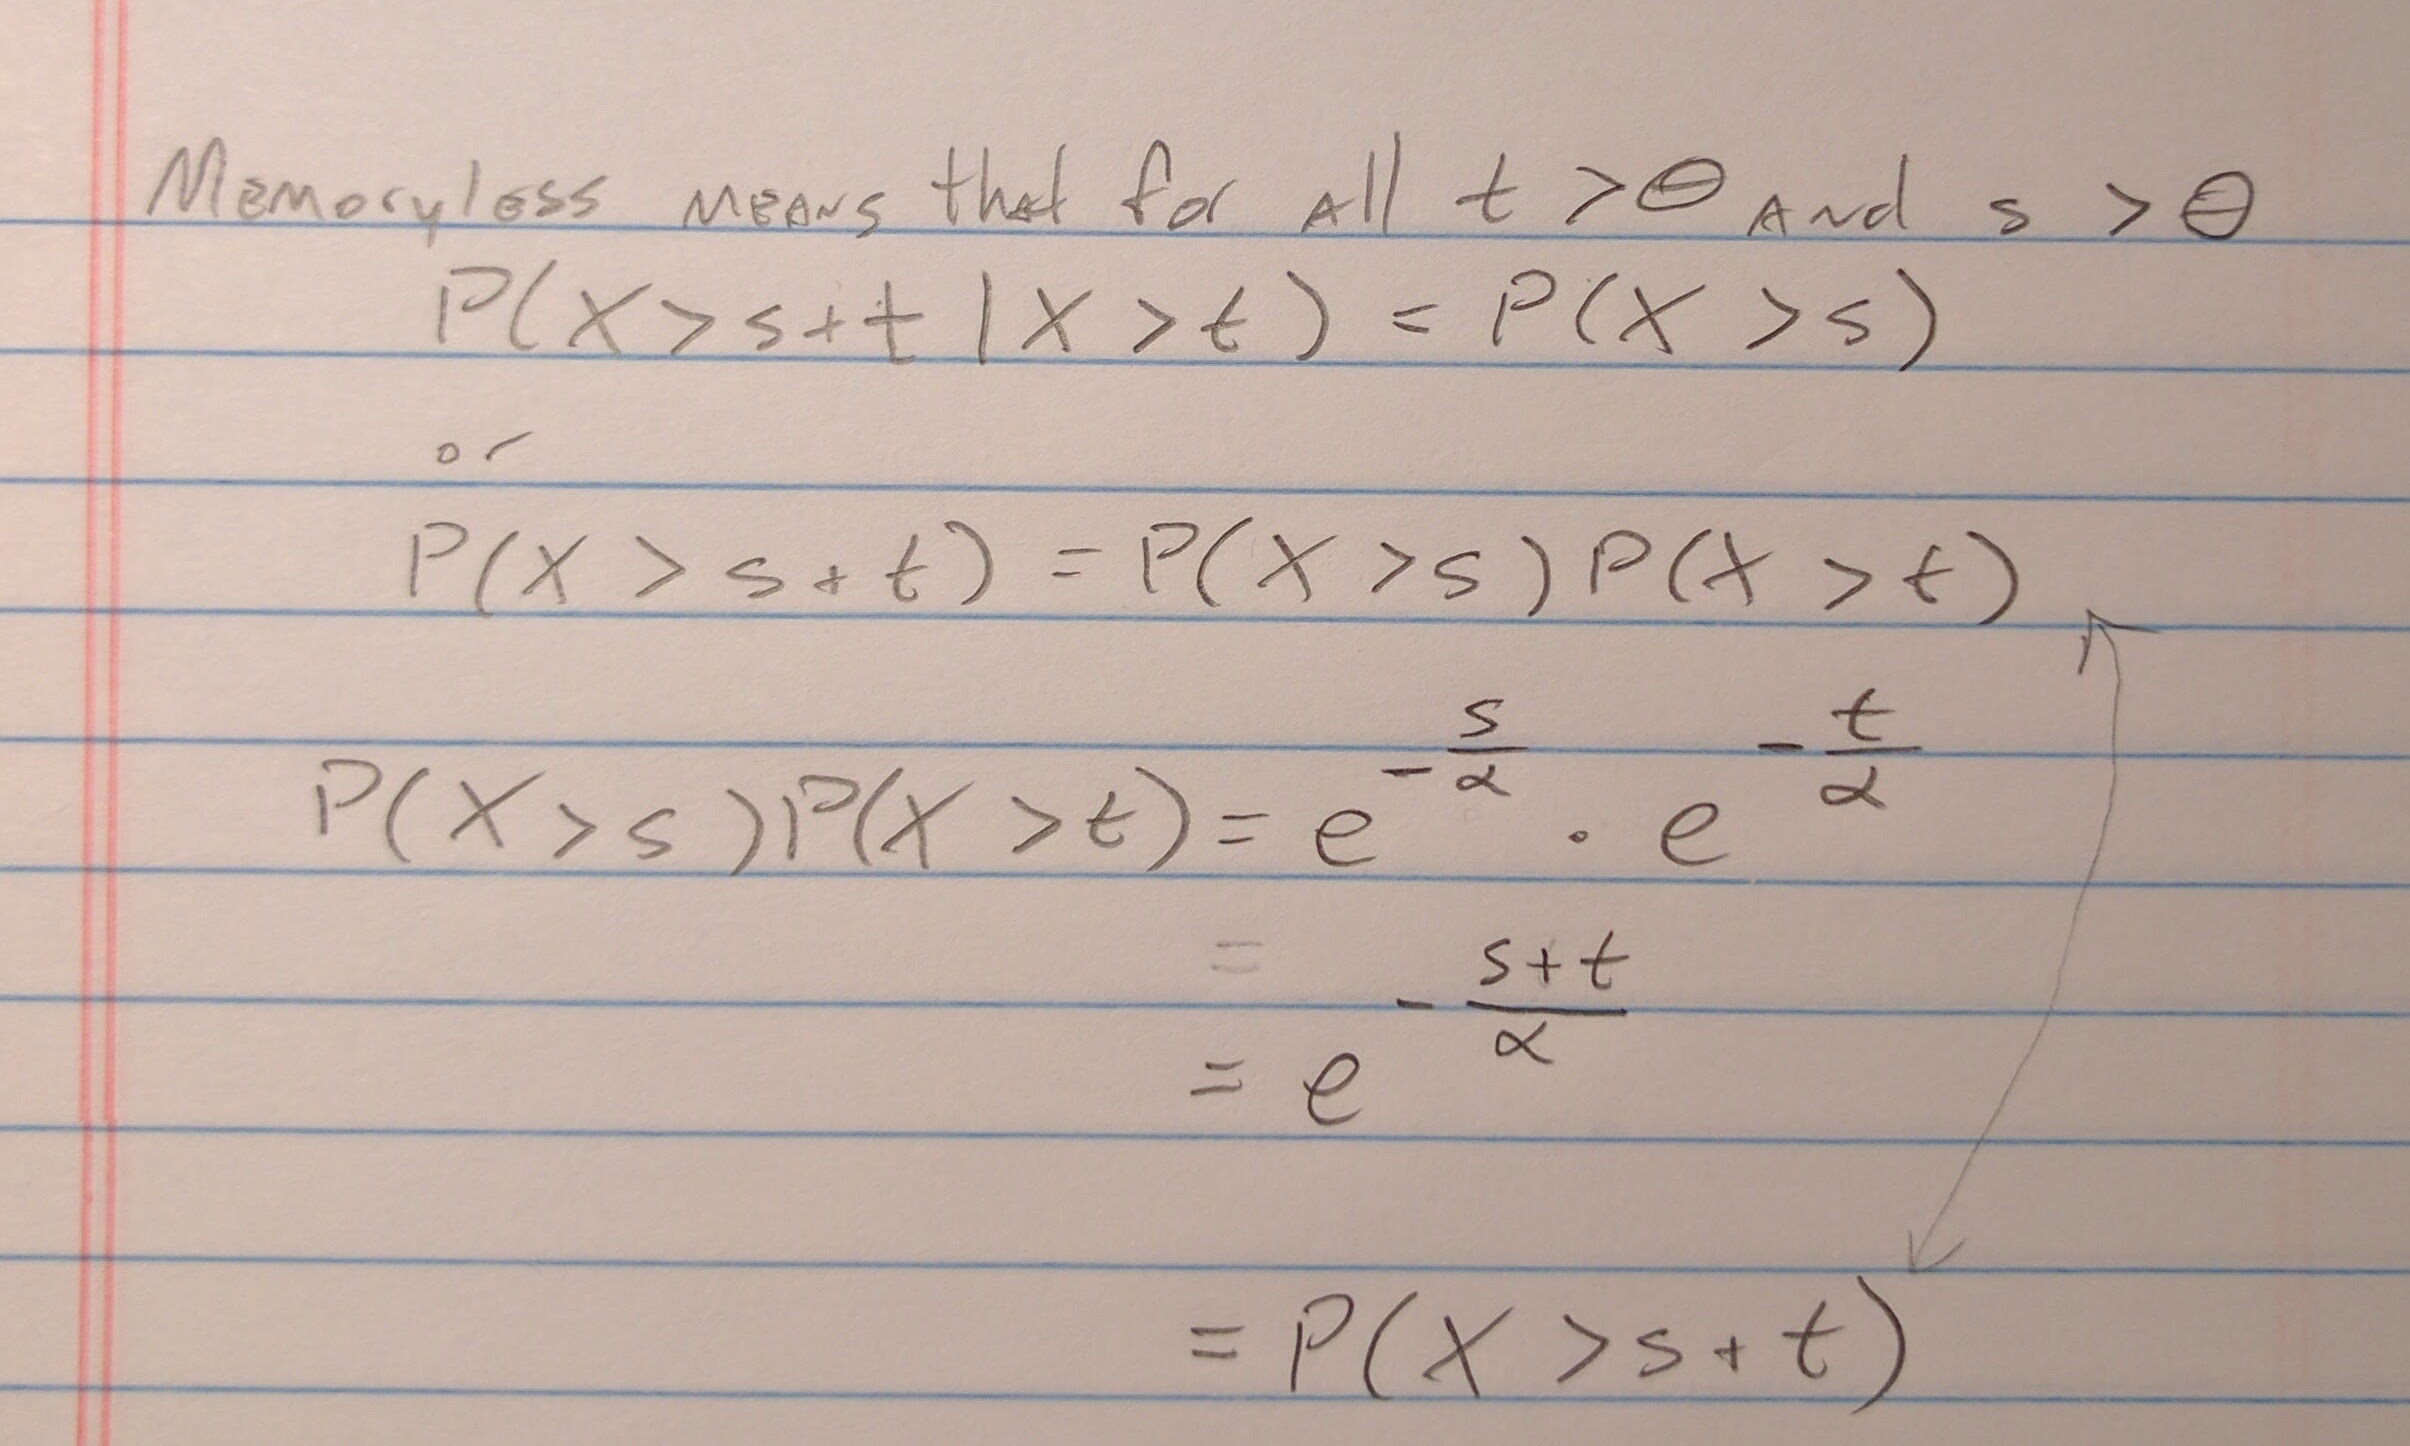 Memoryless means that for all t > θ and s > θ
P(X > s+t | X > t) = P(X > s)
or
P(X > s+t) = P(X > s) P(X > t)
P(X > s) P(X > t) = e^{-s/α} · e^{-t/α}
=
= e^{-(s+t)/α}
= P(X > s+t)